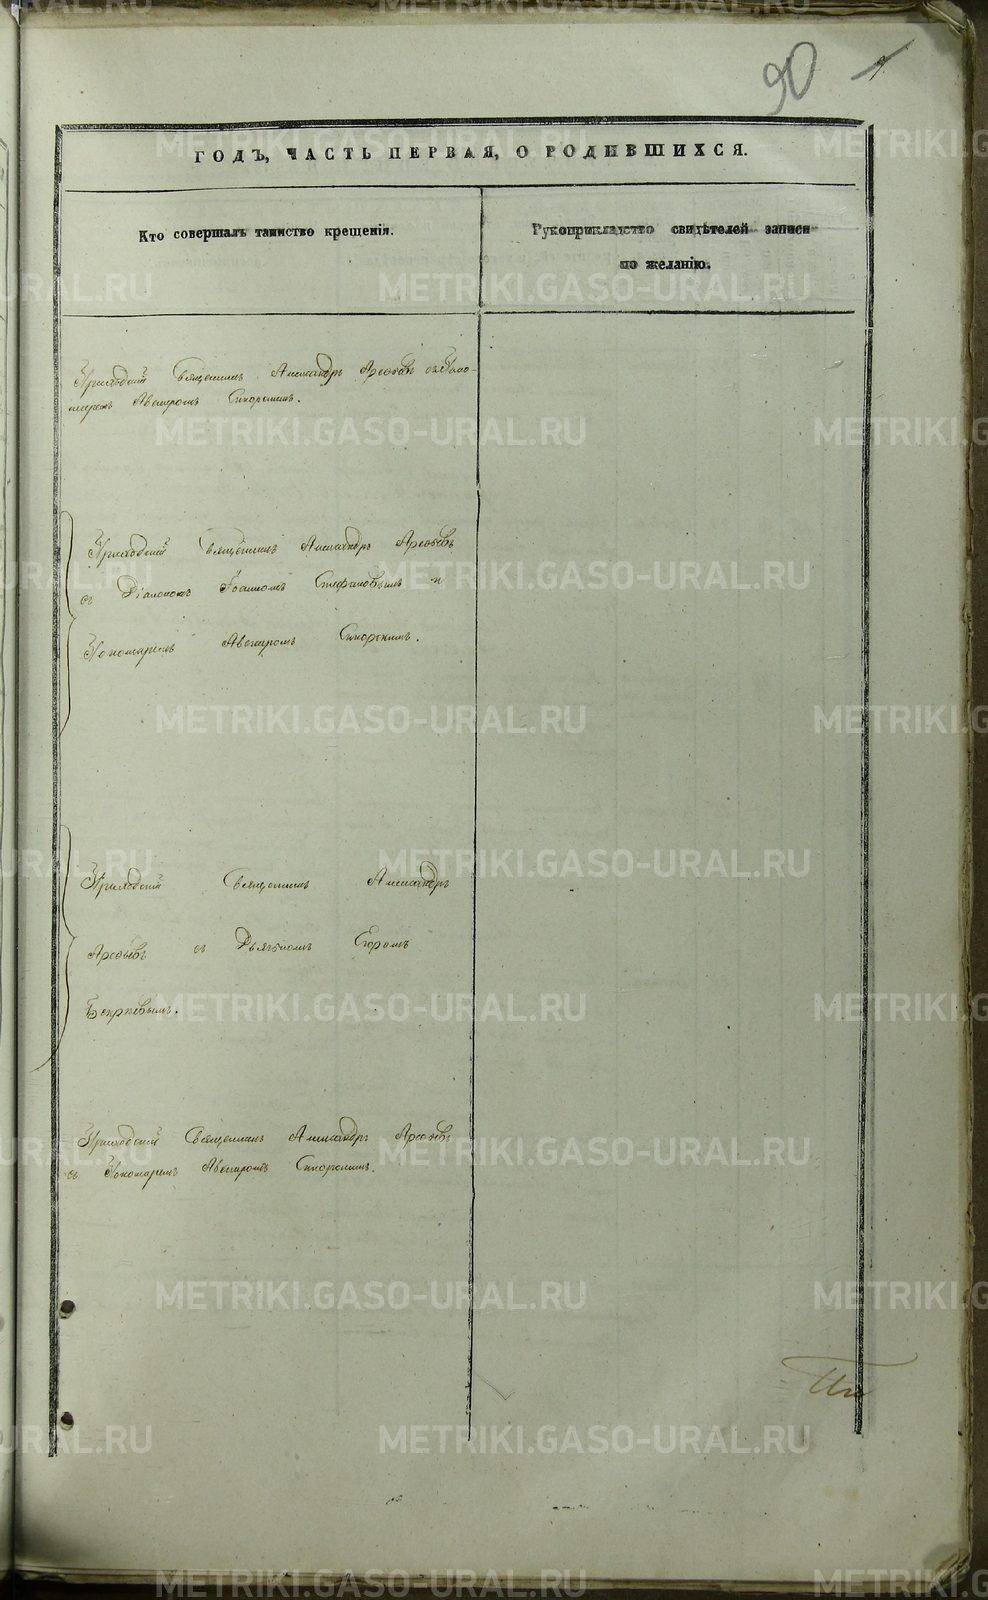 90 1
ГОДЪ, ЧАСТЬ ПЕРВАЯ, О РОДИВШИХСЯ.
Кто совершалъ таинство крещенія.
Рукоприкладство свидѣтелей записи
по желанію.
Приходскій Священникъ Александръ Арефьевъ съ Поно-
маремъ Сикорскимъ.
Приходскій Священникъ Александръ Арефьевъ
съ Діакономъ Іоанномъ Стефановымъ и
Пономаремъ Сикорскимъ.
Приходскій Священникъ Александръ
Арефьевъ съ Дьячкомъ Егоромъ
Приходскій Священникъ Александръ Арефьевъ
съ Пономаремъ Сикорскимъ.
METRIKI.GASO-URAL.RU